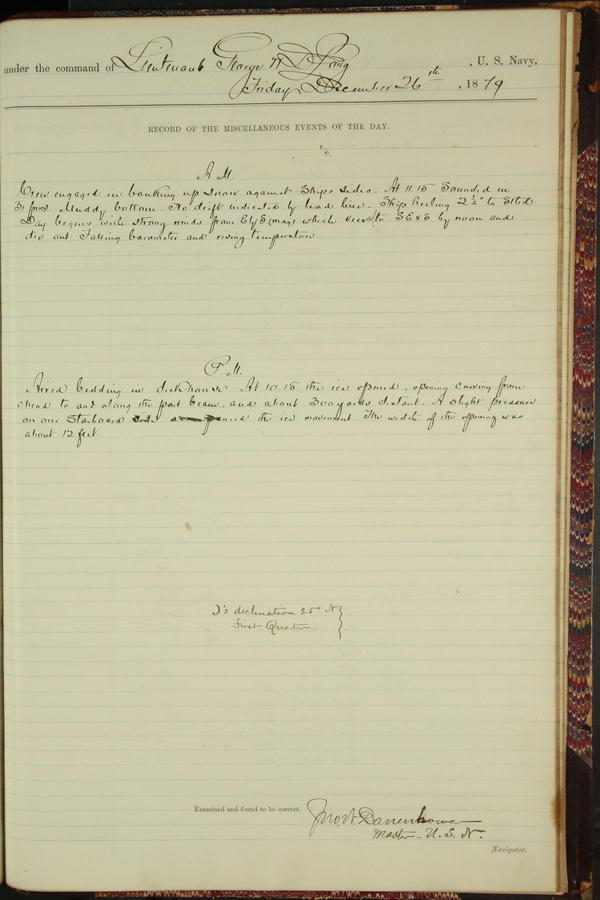 under the command of Lieutenant George W. De Long, U. S. Navy,
Friday, December 26th, 1879
RECORD OF THE MISCELLANEOUS EVENTS OF THE DAY.
A M.
Crew engaged in banking up snow against Ships sides. At 11.15 Sounded in
31 fms. Muddy bottom. No drift indicated by lead line. Ship heeling 2½° to Stbd
Day begins with strong winds from E by S (mag) which veers to SExS by noon and
die out. Falling barometer and rising temperature.
P. M.
Aired bedding in deckhouse. At 10.15 the ice opened, opening curving from
ahead to and along the port beam, and about 300 yards distant. A slight pressure
on our Starboard side accompanied the ice movement. The width of the opening was
about 12 feet
☽'s declination 25° N
First Quarter.
Examined and found to be correct.
Jno. W. Danenhower
Master - U. S. N.
Navigator.